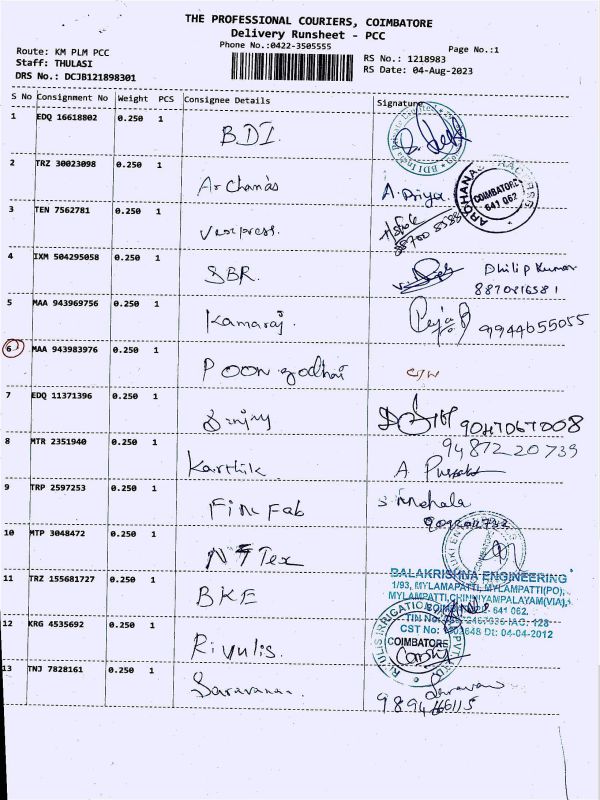 THE PROFESSIONAL COURIERS, COIMBATORE
Delivery Runsheet - PCC
Phone No.:0422-3505555
Page No.:1
Route: KM PLM PCC
Staff: THULASI
DRS No.: DCJB121898301
RS No.: 1218983
RS Date: 04-Aug-2023
S No Consignment No Weight PCS Consignee Details Signature
1 EDQ 16618802 0.250 1 BDI
2 TRZ 30023098 0.250 1 Archanas A. Priya.
COIMBATORE
641 062
3 TEN 7562781 0.250 1
4 IXM 504295058 0.250 1 SBR Dhilip Kumar
8870816581
5 MAA 943969756 0.250 1 Kamaraj. 9944655055
6 MAA 943983976 0.250 1 Poongodhai
7 EDQ 11371396 0.250 1 9047067008
8 MTR 2351940 0.250 1 Karthik 9487220739
9 TRP 2597253 0.250 1 Fine Fab
10 MTP 3048472 0.250 1 N Tex
11 TRZ 155681727 0.250 1 BKE
BALAKRISHNA ENGINEERING
1/93, MYLAMPATTI, MYLAMPATTI(PO),
MYLAMPATTI, CHINNIYAMPALAYAM(VIA),
641 062.
DT: 04-04-2012
12 KRG 4535692 0.250 1 Rivulis.
COIMBATORE
13 TNJ 7828161 0.250 1 Saravanan. Saravanan